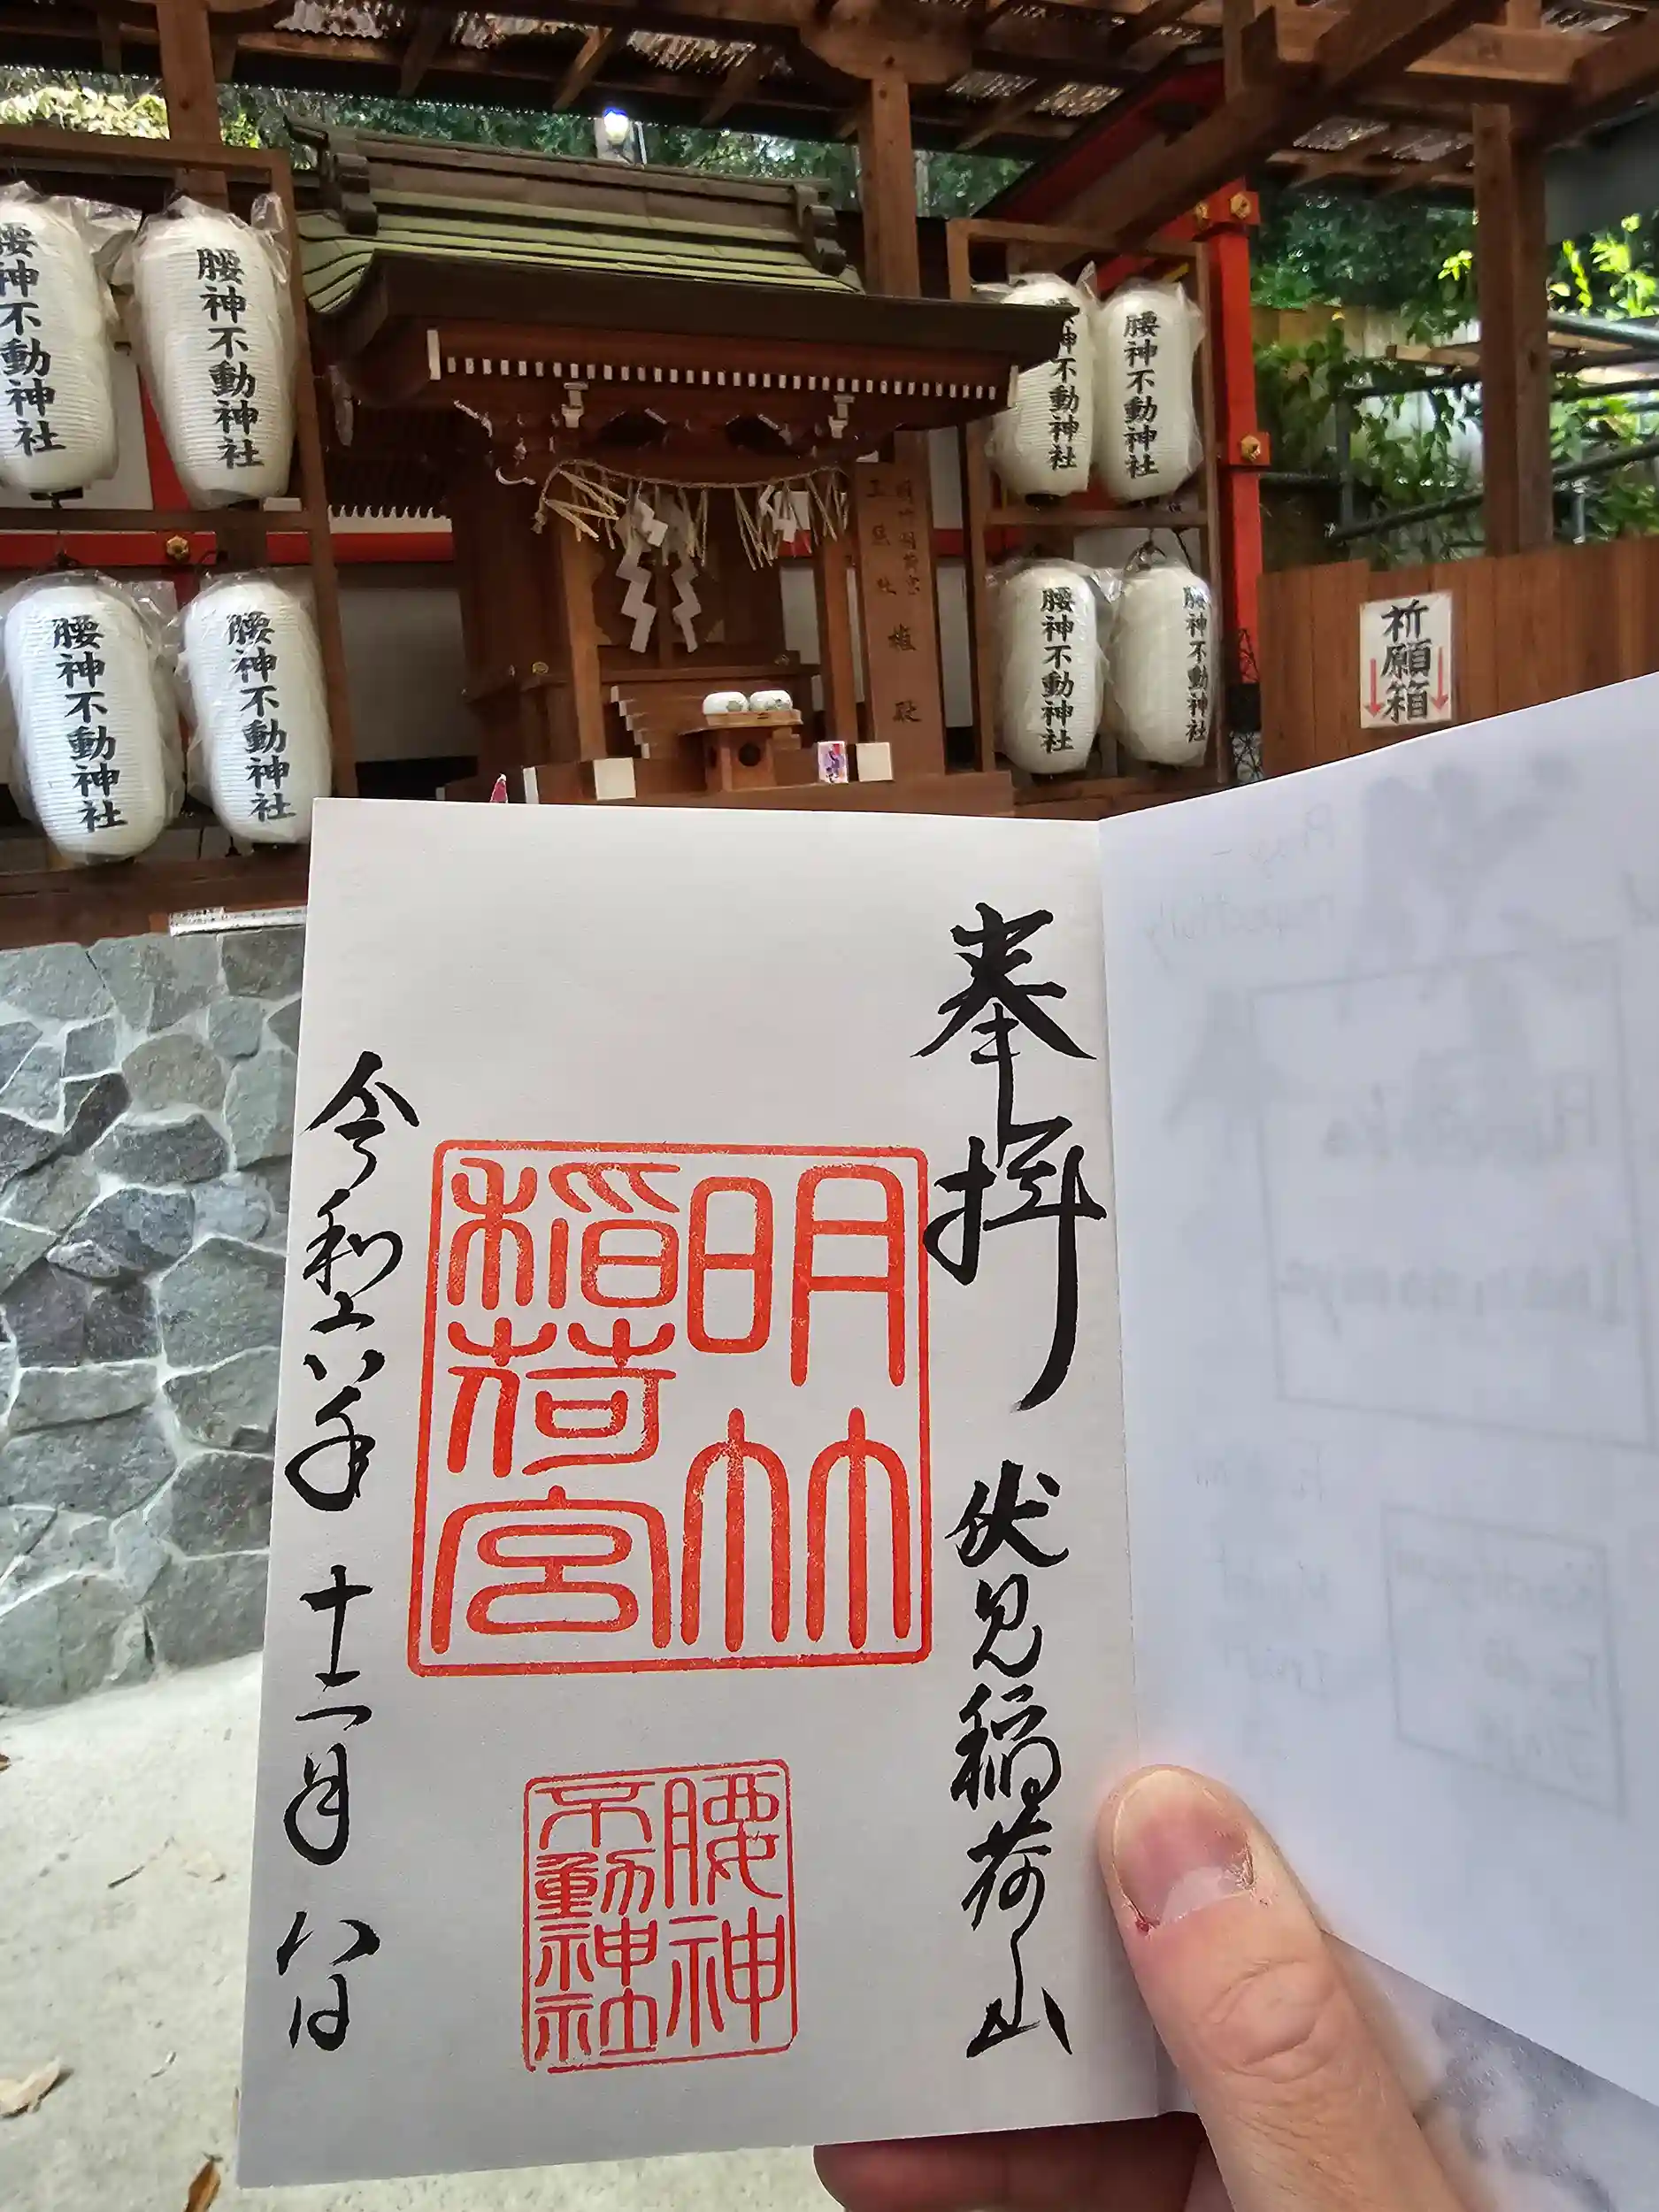 腰神不動神社
腰神不動神社
腰神不動神社
腰神不動神社
神不動神社
腰神不動神社
腰神不動神社
腰神不動神社
祈願箱
奉拝
伏見稲荷山
明竹
稲荷宮
腰神
不動神社
令和六年十二月八日